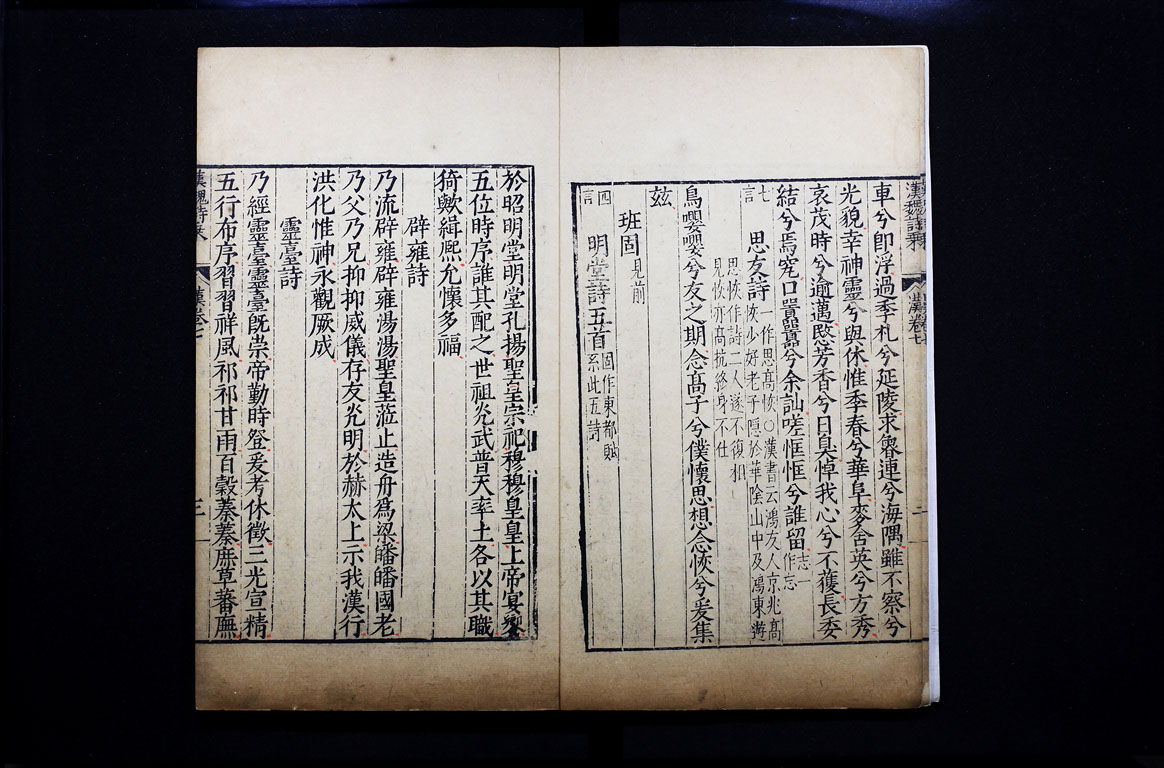 車兮即浮過季札兮延陵求魯連兮海隅雖不察兮
光貌幸神靈兮與休惟季春兮華阜麥含英兮方秀
哀茂時兮逾邁愍芳香兮日臭悼我心兮不獲長委
結兮焉究口嚚嚚兮余訕嗟恇恇兮誰留志一作忘
七言
思友詩一作思高恢○漢書云鴻友人京兆高恢少好老子隱於華陰山中及鴻東遊思恢作詩二人遂不復相見恢亦高抗終身不仕
鳥嚶嚶兮友之期念高子兮僕懷思想念恢兮爰集
玆
班固見前
四言
明堂詩五首固作東都賦系此五詩
於昭明堂明堂孔揚聖皇宗祀穆穆皇皇上帝宴饗
五位時序誰其配之世祖光武普天率土各以其職
猗歟緝熙允懷多福
辟雍詩
乃流辟雍辟雍湯湯聖皇蒞止造舟爲梁皤皤國老
乃父乃兄抑抑威儀孝友光明於赫太上示我漢行
洪化惟神永觀厥成
靈臺詩
乃經靈臺靈臺既崇帝勤時登爰考休徵三光宣精
五行布序習習祥風祁祁甘雨百穀蓁蓁庶草蕃廡
漢魏詩乘
漢卷七
三